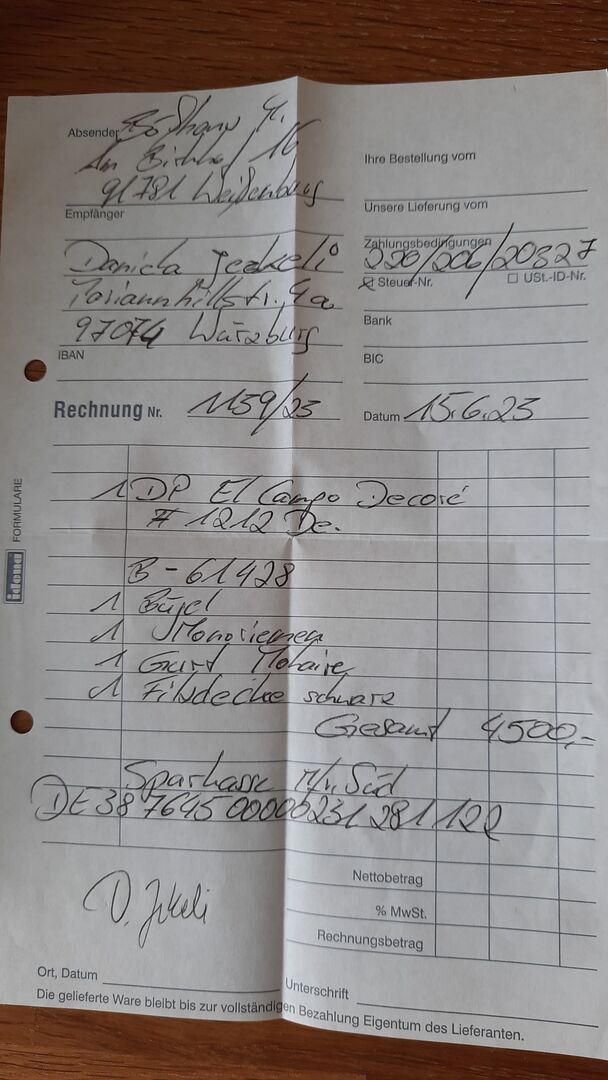 Absender
An Birkhof 16
91781 Weißenburg
Ihre Bestellung vom
Unsere Lieferung vom
Empfänger
Zahlungsbedingungen
220/206/20327
Steuer-Nr. USt.-ID-Nr.
Daniela Jezkeli
Mariannhillstr. 4a
97074 Würzburg
Bank
IBAN
BIC
Rechnung Nr. 1159/23
Datum 15.6.23
1 DP El Campo Decoré
# 1212 De.
B-61428
1 Bügel
1 Monoriemen
1 Gurt Mohair
1 Filzdecke schwarz
Gesamt 4500,-
Sparkasse Süd
DE38 7645 0000 0231 281 122
D. Jekeli
Nettobetrag
% MwSt.
Rechnungsbetrag
Ort, Datum
Unterschrift
Die gelieferte Ware bleibt bis zur vollständigen Bezahlung Eigentum des Lieferanten.
idena FORMULARE